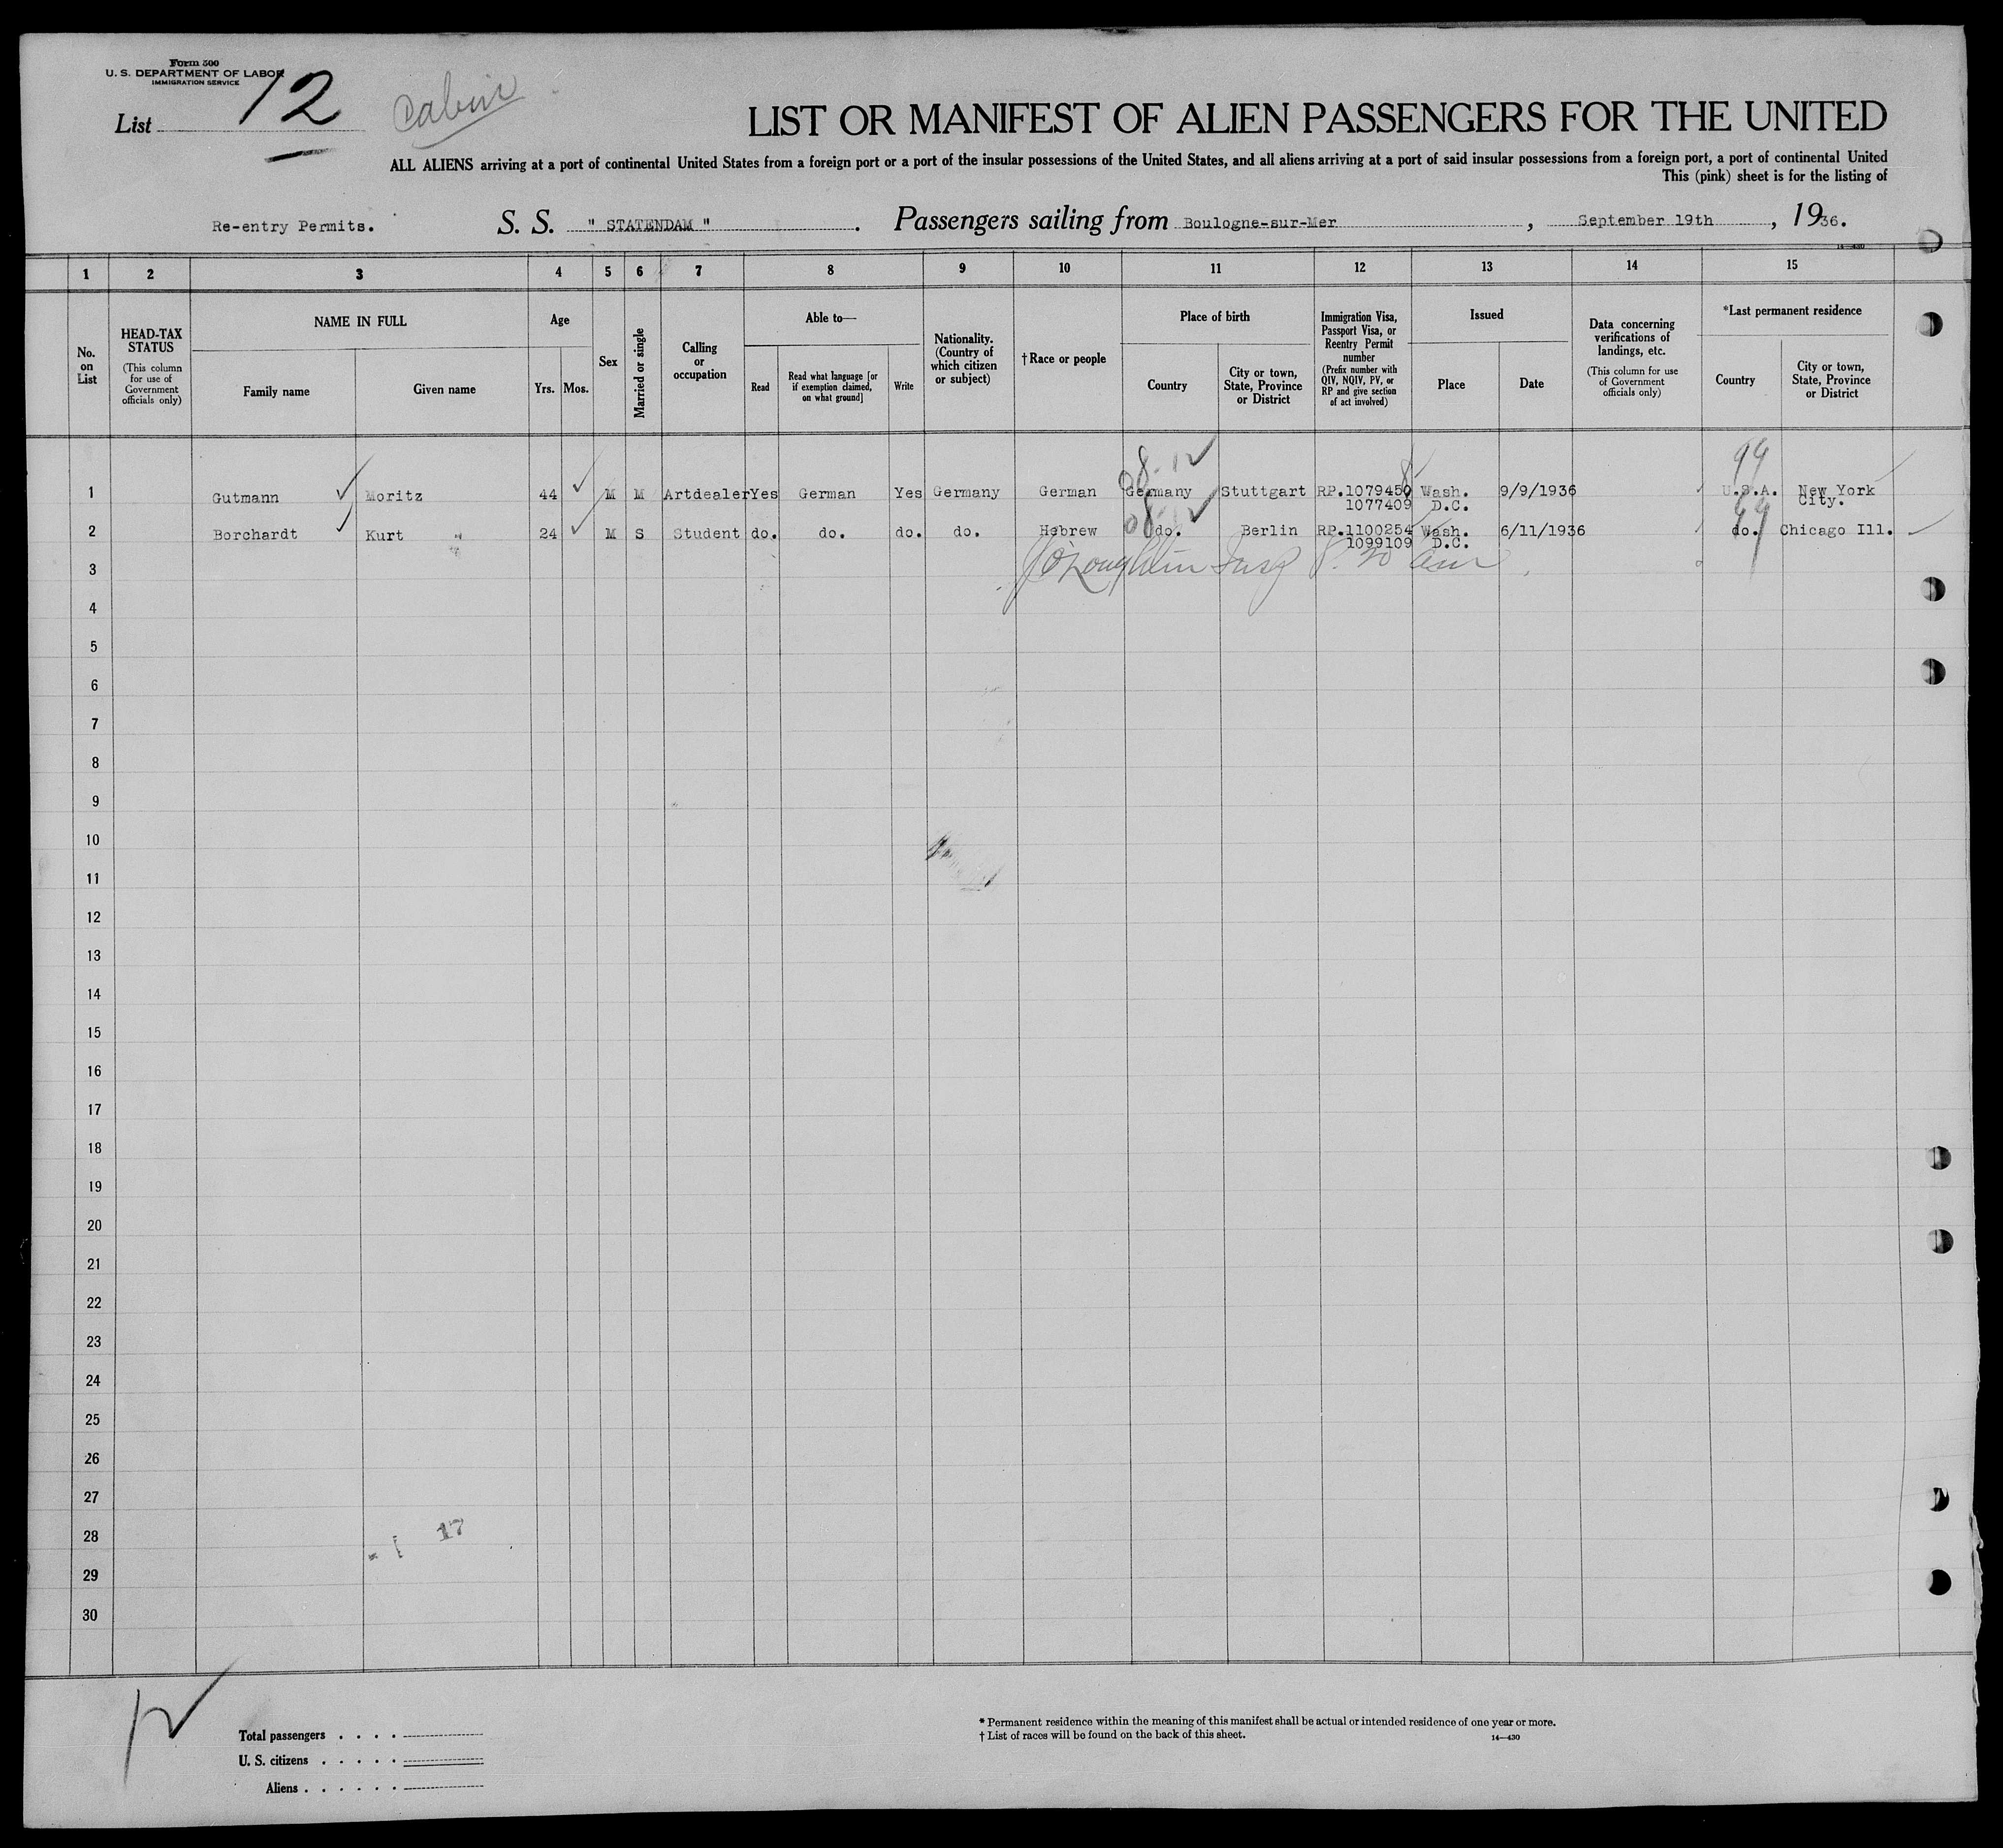 Form 500
U. S. DEPARTMENT OF LABOR
IMMIGRATION SERVICE
List 12
Cabin
LIST OR MANIFEST OF ALIEN PASSENGERS FOR THE UNITED
ALL ALIENS arriving at a port of continental United States from a foreign port or a port of the insular possessions of the United States, and all aliens arriving at a port of said insular possessions from a foreign port, a port of continental United
This (pink) sheet is for the listing of
Re-entry Permits. S. S. " STATENDAM ". Passengers sailing from Boulogne-sur-Mer, September 19th, 1936.
14—430
1 2 3 4 5 6 7 8 9 10 11 12 13 14 15
No. on List
HEAD-TAX STATUS (This column for use of Government officials only)
NAME IN FULL
Family name Given name
Age
Yrs. Mos.
Sex
Married or single
Calling or occupation
Able to—
Read Read what language [or if exemption claimed, on what ground] Write
Nationality. (Country of which citizen or subject)
†Race or people
Place of birth
Country City or town, State, Province or District
Immigration Visa, Passport Visa, or Reentry Permit number (Prefix number with QIV, NQIV, PV, or RP and give section of act involved)
Issued
Place Date
Data concerning verifications of landings, etc. (This column for use of Government officials only)
*Last permanent residence
Country City or town, State, Province or District
08-12 8 99
1 Gutmann Moritz 44 M M Artdealer Yes German Yes Germany German Germany Stuttgart RP.1079450 Wash. 9/9/1936 U.S.A. New York
1077409 D.C. City.
08-12 99
2 Borchardt Kurt 24 M S Student do. do. do. do. Hebrew do. Berlin RP.1100254 Wash. 6/11/1936 do. Chicago Ill.
1099109 D.C.
3 O'Loughlin Insp 8.20 am
4
5
6
7
8
9
10
11
12
13
14
15
16
17
18
19
20
21
22
23
24
25
26
27
28 17
29
30
Total passengers . . . .
U. S. citizens . . . . .
Aliens . . . . . .
* Permanent residence within the meaning of this manifest shall be actual or intended residence of one year or more.
† List of races will be found on the back of this sheet.
14—430